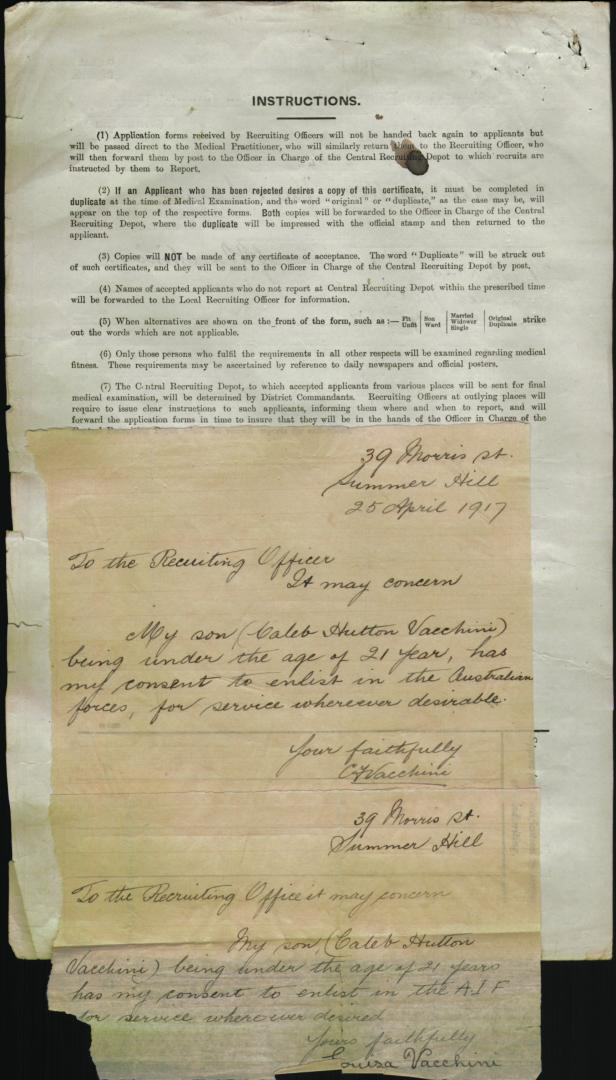 INSTRUCTIONS.
(1) Application forms received by Recruiting Officers will not be handed back again to applicants but
will be passed direct to the Medical Practitioner, who will similarly return them to the Recruiting Officer, who
will then forward them by post to the Officer in Charge of the Central Recruiting Depot to which recruits are
instructed by them to Report.
(2) If an Applicant who has been rejected desires a copy of this certificate, it must be completed in
duplicate at the time of Medical Examination, and the word "original" or "duplicate," as the case may be, will
appear on the top of the respective forms. Both copies will be forwarded to the Officer in Charge of the Central
Recruiting Depot, where the duplicate will be impressed with the official stamp and then returned to the
applicant.
(3) Copies will NOT be made of any certificate of acceptance. The word "Duplicate" will be struck out
of such certificates, and they will be sent to the Officer in Charge of the Central Recruiting Depot by post.
(4) Names of accepted applicants who do not report at Central Recruiting Depot within the prescribed time
will be forwarded to the Local Recruiting Officer for information.
(5) When alternatives are shown on the front of the form, such as :— Fit Unfit | Son Ward | Married Widower Single | Original Duplicate strike
out the words which are not applicable.
(6) Only those persons who fulfil the requirements in all other respects will be examined regarding medical
fitness. These requirements may be ascertained by reference to daily newspapers and official posters.
(7) The Central Recruiting Depot, to which accepted applicants from various places will be sent for final
medical examination, will be determined by District Commandants. Recruiting Officers at outlying places will
require to issue clear instructions to such applicants, informing them where and when to report, and will
forward the application forms in time to insure that they will be in the hands of the Officer in Charge of the
39 Morris st.
Summer Hill
25 April 1917
To the Recruiting Officer
It may concern
My son (Caleb Hutton Vacchini)
being under the age of 21 year, has
my consent to enlist in the Australian
forces, for service wherever desirable.
Your faithfully
C F Vacchini
39 Morris st.
Summer Hill
To the Recruiting Office it may concern
My son, (Caleb Hutton
Vacchini) being under the age of 21 years
has my consent to enlist in the A.I.F
for service wherever desired
Yours faithfully
Louisa Vacchini